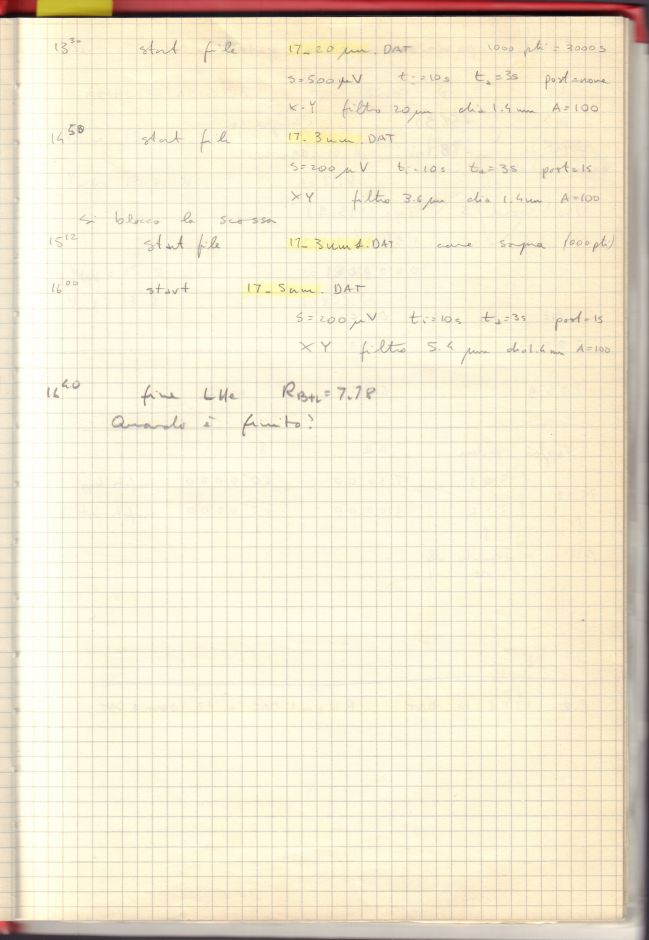 13³⁰ start file 17_20 µm. DAT 1000 pti = 3000s
S=500µV tᵢ=10s tₛ=3s post=none
X-Y filtro 20µm dia 1.4mm A=100
14⁵⁰ start file 17_3um. DAT
S=200µV tᵢ=10s tₛ=3s post=1s
XY filtro 3.6µm dia 1.4mm A=100
si blocca la scossa
15¹² start file 17_3um1.DAT come sopra (1000pti)
16⁰⁰ start 17_5um. DAT
S=200µV tᵢ=10s tₛ=3s post=1s
XY filtro 5.4 µm dia1.4m A=100
16⁴⁰ fine LHe R_B+L=7.78
Quando è finito?